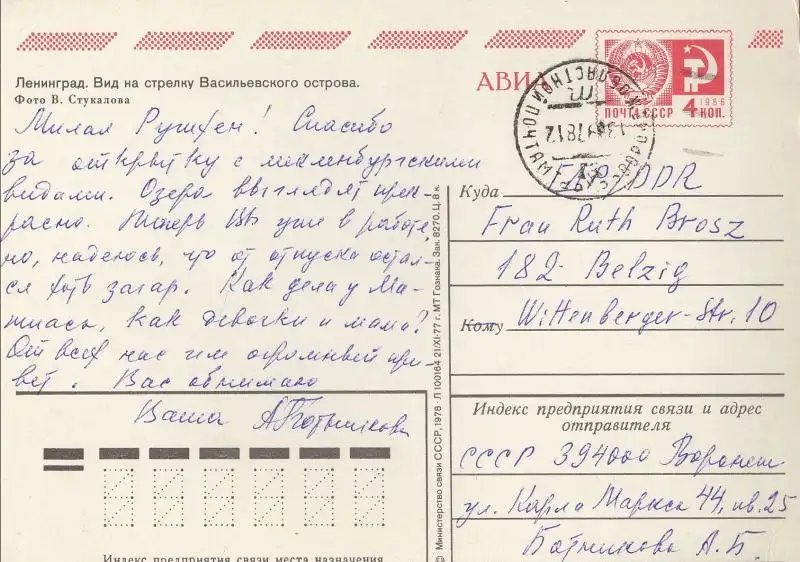 Ленинград. Вид на стрелку Васильевского острова.
Фото В. Стукалова
АВИА
1966
ПОЧТА СССР 4 КОП.
Милая Рутхен! Спасибо
за открытку с мекленбургскими
видами. Озера выглядят прек-
расно. Теперь Вы уже в работе,
но, надеюсь, что от отпуска остал-
ся хоть загар. Как дела у Ма-
тиаса, как девочки и мама?
От всех нас им огромный при-
вет. Вас обнимаю
Ваша АБотникова
Куда
DDR
Frau Ruth Brosz
182 Belzig
Кому Wittenberger-Str. 10
Индекс предприятия связи и адрес
отправителя
СССР 394000 Воронеж
ул. Карла Маркса 44, кв. 25
Ботникова А. Б.
Индекс предприятия связи места назначения
© Министерство связи СССР, 1978 · Л 100164 21/XI-77 г. МТ Гознака. Зак. 8270. Ц. 8 к.